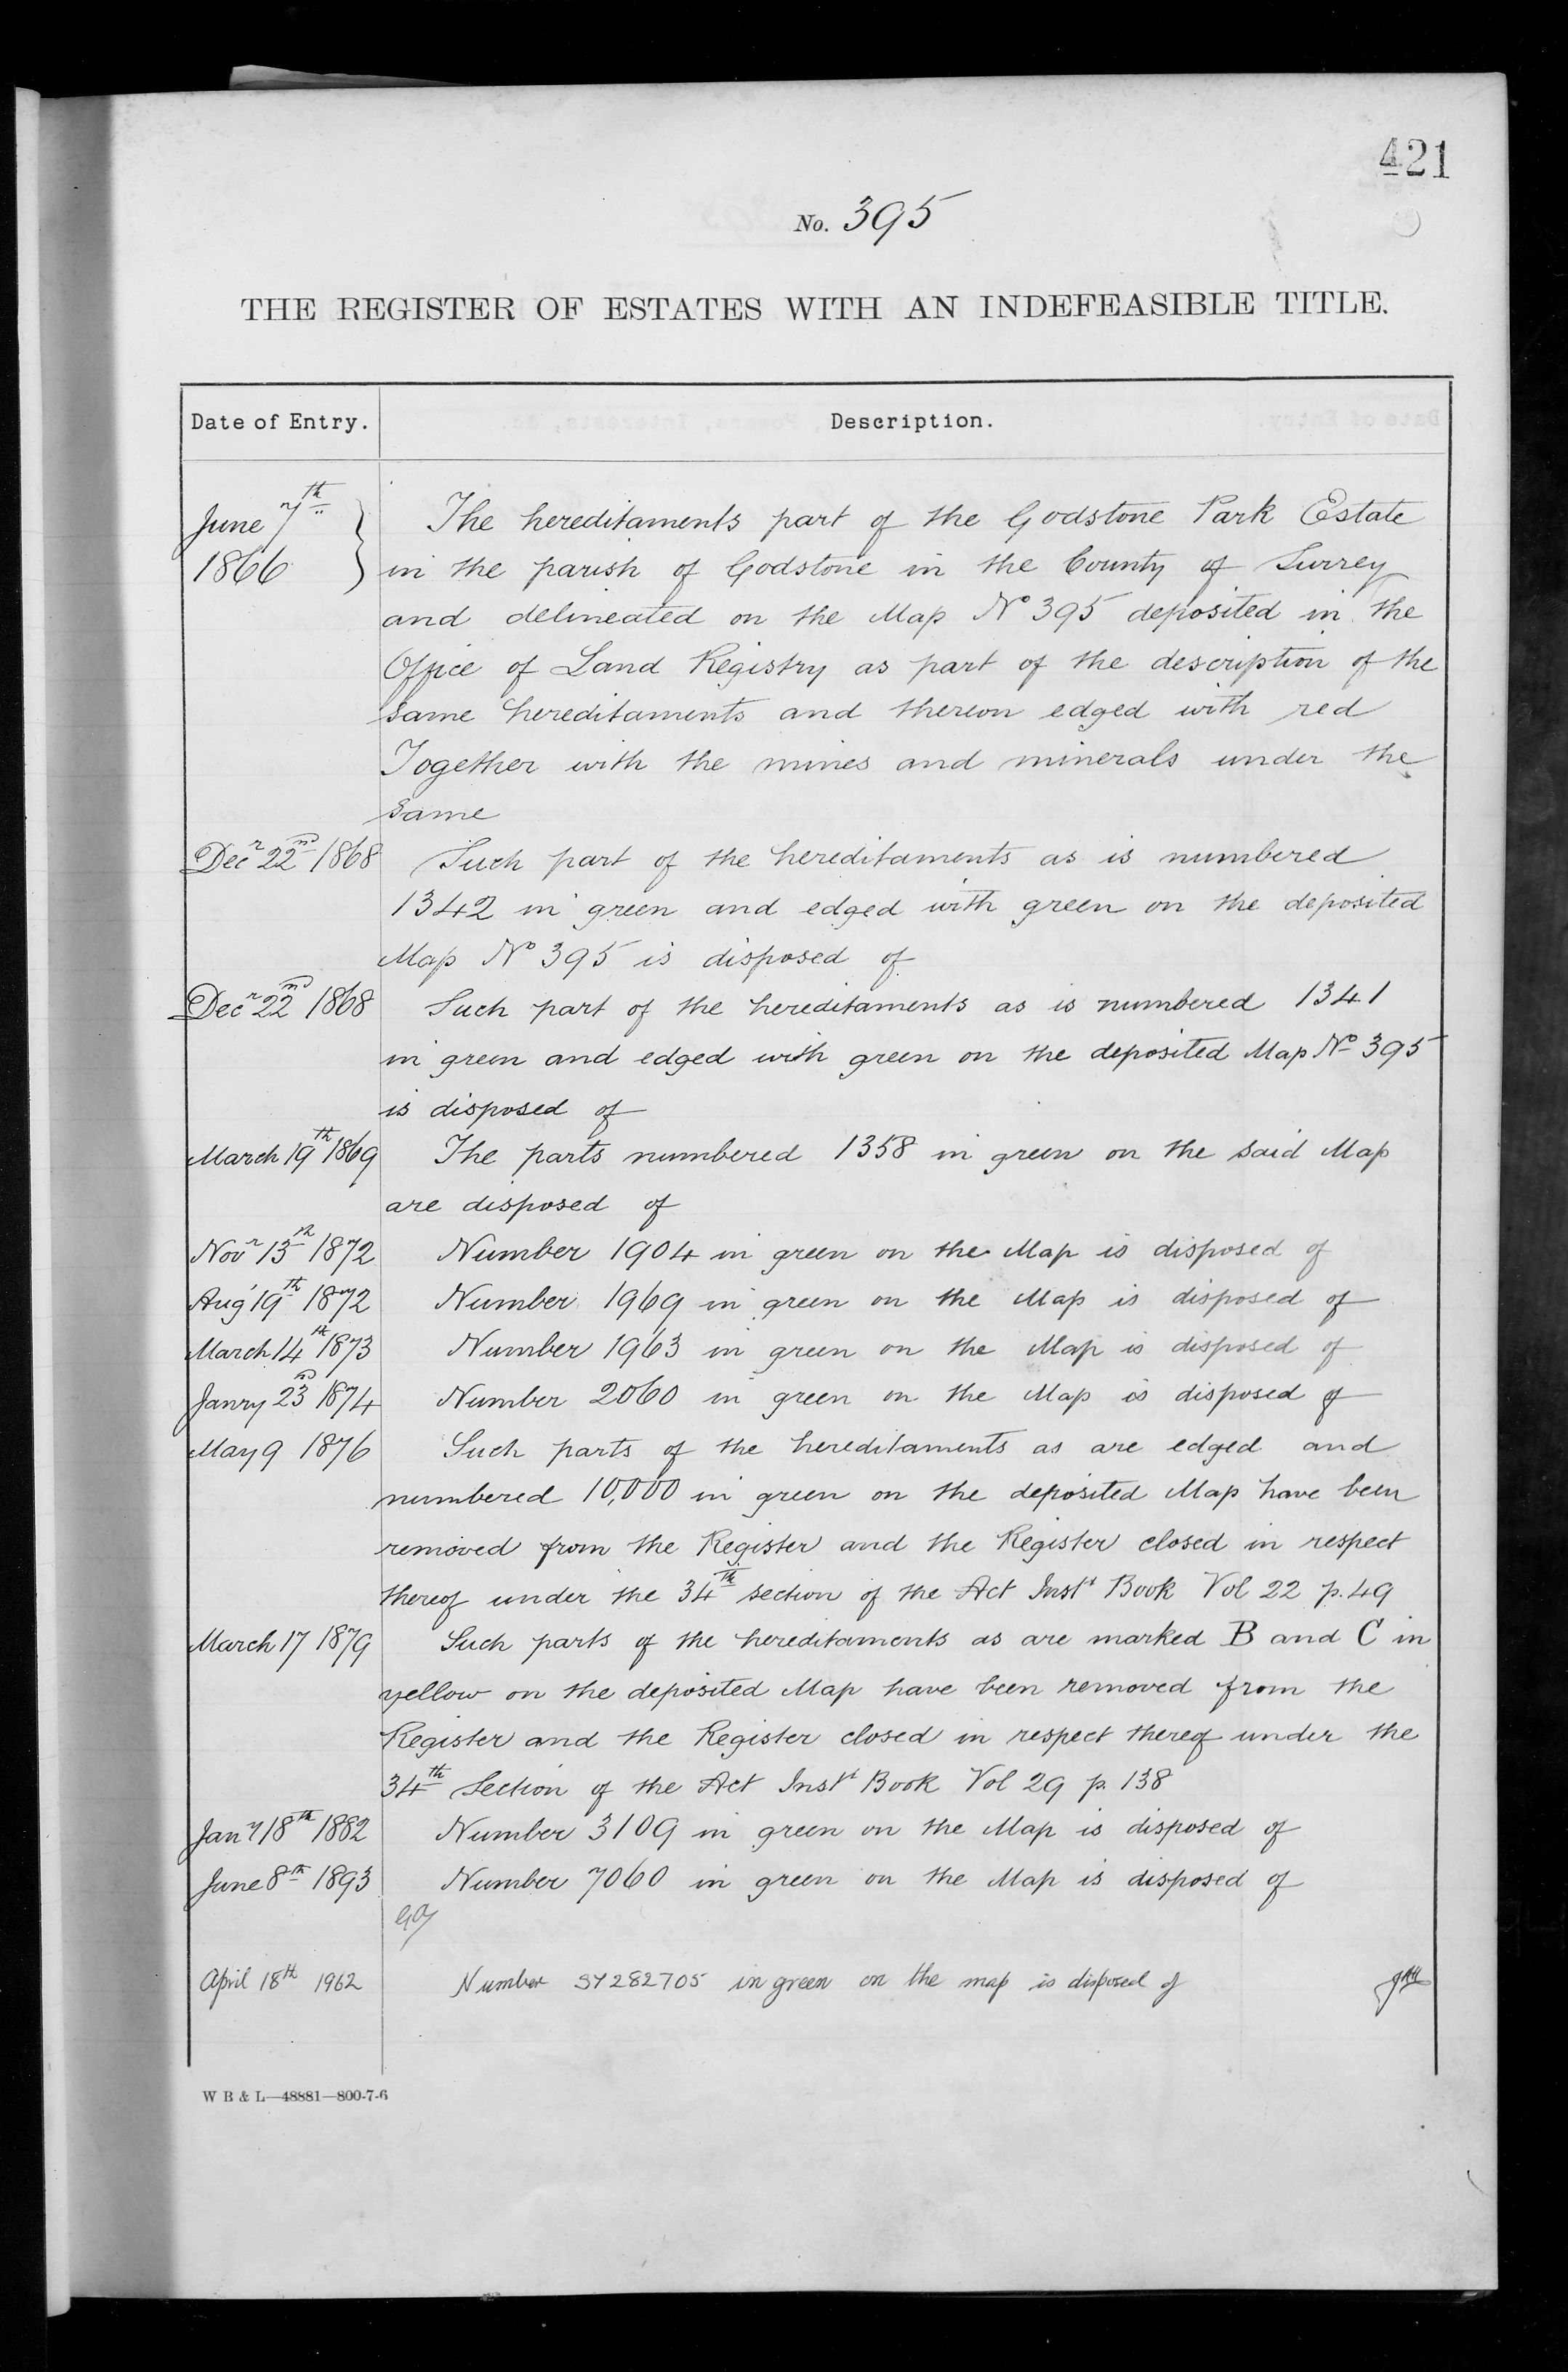 421
No. 395
THE REGISTER OF ESTATES WITH AN INDEFEASIBLE TITLE.
Date of Entry. Description.
June 7th The hereditaments part of the Godstone Park Estate
1866 in the parish of Godstone in the County of Surrey
and delineated on the Map No 395 deposited in the
Office of Land Registry as part of the description of the
same hereditaments and thereon edged with red
Together with the mines and minerals under the
same
Decr 22nd 1868 Such part of the hereditaments as is numbered
1342 in green and edged with green on the deposited
Map No 395 is disposed of
Decr 22nd 1868 Such part of the hereditaments as is numbered 1341
in green and edged with green on the deposited Map No 395
is disposed of
March 19th 1869 The parts numbered 1358 in green on the said Map
are disposed of
Novr 13th 1872 Number 1904 in green on the Map is disposed of
Aug 19th 1872 Number 1969 in green on the Map is disposed of
March 14th 1873 Number 1963 in green on the Map is disposed of
Janry 23rd 1874 Number 2060 in green on the Map is disposed of
May 9 1876 Such parts of the hereditaments as are edged and
numbered 10,000 in green on the deposited Map have been
removed from the Register and the Register closed in respect
thereof under the 34th section of the Act Inst Book Vol 22 p. 49
March 17 1879 Such parts of the hereditaments as are marked B and C in
yellow on the deposited Map have been removed from the
Register and the Register closed in respect thereof under the
34th Section of the Act Inst Book Vol 29 p. 138
Jany 18th 1882 Number 3109 in green on the Map is disposed of
June 8th 1893 Number 7060 in green on the Map is disposed of
April 18th 1962 Number SY282705 in green on the map is disposed of
W B & L—48881—800-7-6